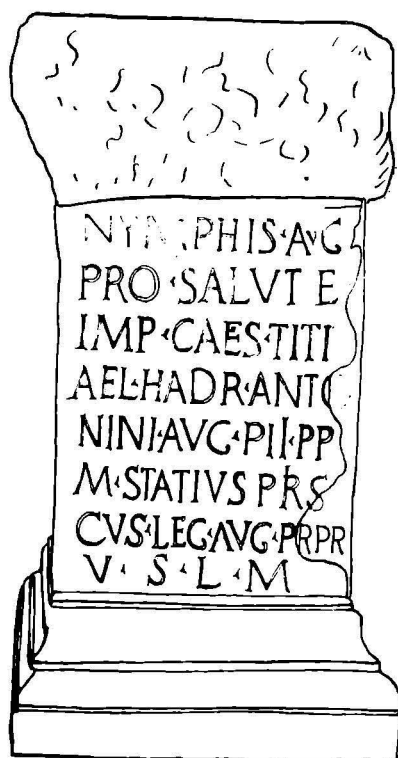 NYMPHIS·AVG
PRO·SALVTE
IMP·CAES·TITI
AEL·HADR·ANTO
NINI·AVG·PII·PP
M·STATIVS PRS
CVS·LEG·AVG·PRPR
V·S·L·M